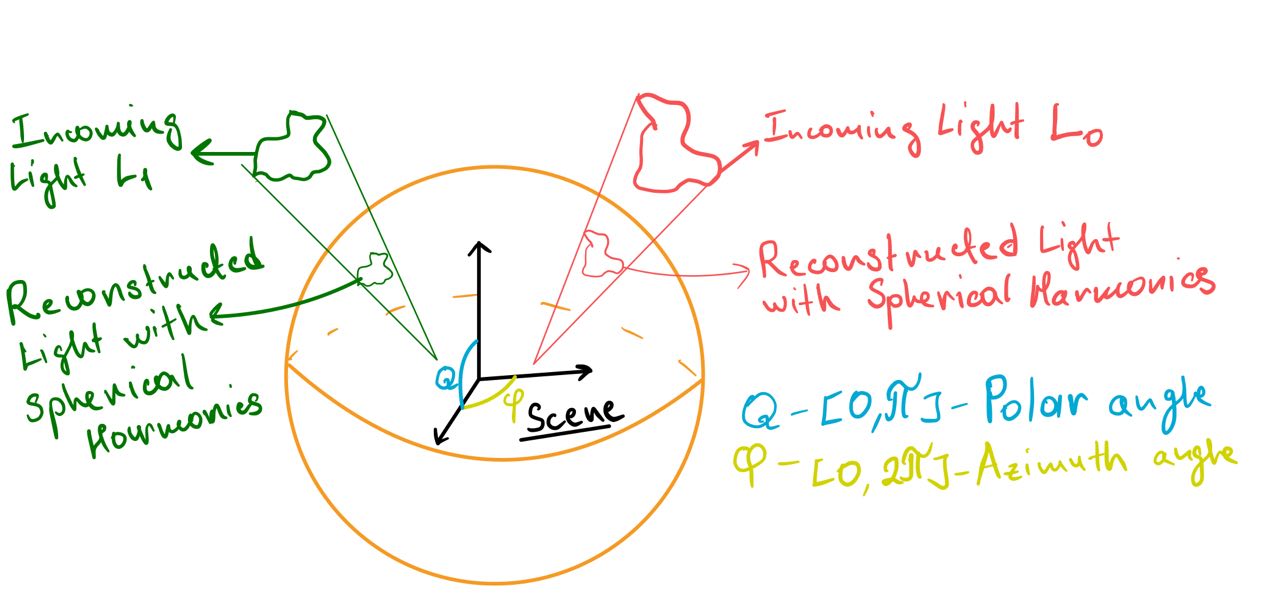 Incoming
Light L1
Incoming Light L0
Reconstructed
Light with
Spherical
Harmonics
Reconstructed Light
with Spherical Harmonics
Q
φ
Scene
Q - [0, π] - Polar angle
φ - [0, 2π] - Azimuth angle